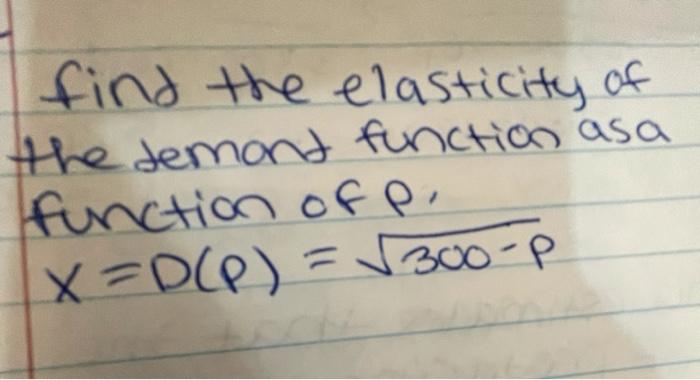 find the elasticity of
the demand function as a
function of p.
x = D(p) = √300-p